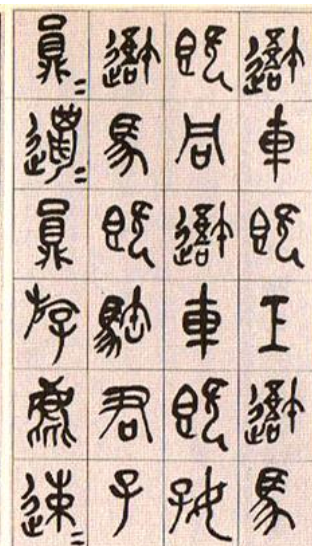 吾車既工吾馬
既同吾車既好
吾馬既駓君子
員=邋=員斿麀速=